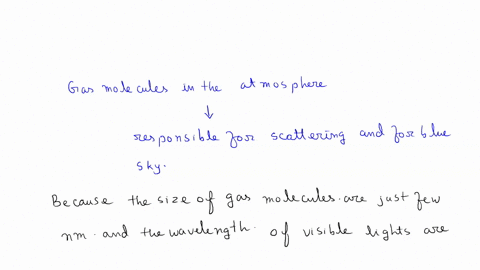 Gas molecules in the atmosphere
↓
responsible for scattering and for blue
sky.
Because the size of gas molecules. are just few
nm. and the wavelength. of visible lights are